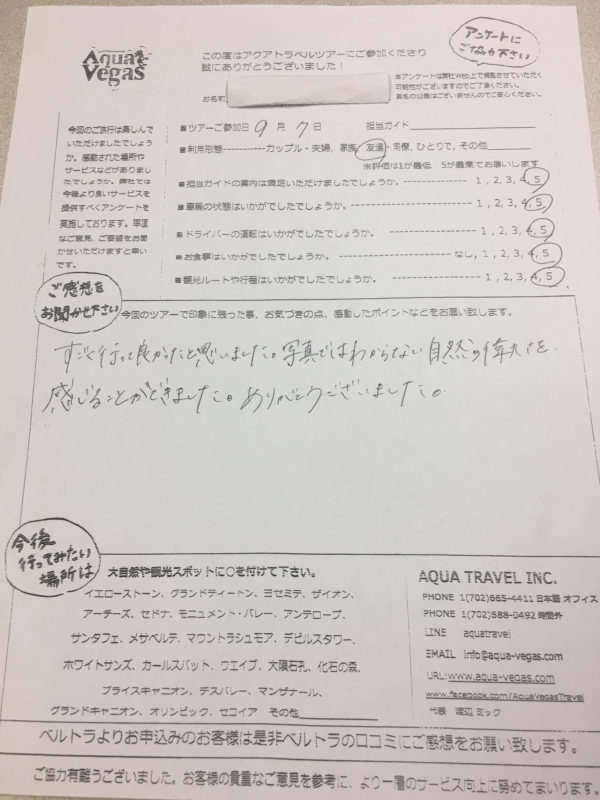 Aqua
Vegas
アンケートに
ご協力下さい
この度はアクアトラベルツアーにご参加くださり
誠にありがとうございました！
本アンケートは弊社Web上で掲載させていただく
可能性がございますのでご了承ください。
実名の公表はございませんのでご安心ください。
お名前
今回のご旅行は楽しんで
いただけましたでしょう
か。感動された場所や
サービスなどがありまし
たでしょうか。弊社では
今後より良いサービスを
提供すべくアンケートを
実施しております。率直
なご意見、ご要望をお聞
かせいただけますと幸い
です。
■ツアーご参加日 9 月 7 日 担当ガイド
■利用形態------------カップル・夫婦, 家族, 友達・同僚, ひとりで, その他
※評価は1が最低、5が最高でお願いします
■担当ガイドの案内は満足いただけましたでしょうか。 ---------------- 1, 2, 3, 4, 5
■車輌の状態はいかがでしたでしょうか。---------------------- 1, 2, 3, 4, 5
■ドライバーの運転はいかがでしたでしょうか。 ------------------ 1, 2, 3, 4, 5
■お食事はいかがでしたでしょうか。 ------------------ なし, 1, 2, 3, 4, 5
■観光ルートや行程はいかがでしたでしょうか。 ------------------ 1, 2, 3, 4, 5
ご感想を
お聞かせ下さい
今回のツアーで印象に残った事、お気づきの点、感動したポイントなどをお願い致します。
すごく行って良かったと思いました。写真ではわからない自然の偉大さを
感じることができました。ありがとうございました。
今後
行ってみたい
場所は
大自然や観光スポットに○を付けて下さい。
イエローストーン、グランドティートン、ヨセミテ、ザイオン、
アーチーズ、セドナ、モニュメント・バレー、アンテロープ、
サンタフェ、メサベルテ、マウントラシュモア、デビルスタワー、
ホワイトサンズ、カールスバット、ウエイブ、大隕石孔、化石の森、
ブライスキャニオン、デスバレー、マンザナール、
グランドキャニオン、オリンピック、セコイア その他
AQUA TRAVEL INC.
PHONE 1(702)665-4411 日本語 オフィス
PHONE 1(702)688-0492 時間外
LINE aquatravel
EMAIL info@aqua-vegas.com
URL: www.aqua-vegas.com
www.facebook.com/AquaVegasTravel
代表 渡辺 ミック
ベルトラよりお申込みのお客様は是非ベルトラの口コミにご感想をお願い致します。
ご協力有難うございました。お客様の貴重なご意見を参考に、より一層のサービス向上に努めてまいります。